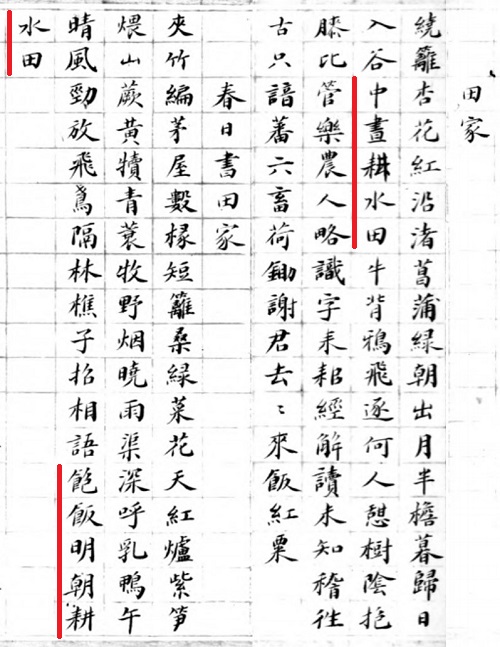 田家
繞籬杏花紅沿渚菖蒲綠朝出月半檐暮歸日
入谷中晝耕水田牛背鴉飛逐何人憩樹陰抱
膝比管樂農人略識字耒耜經解讀未知稽往
古只諳蕃六畜荷鋤謝君去〻來飯紅粟
春日書田家
夾竹編茅屋數椽短籬桑綠菜花天紅爐紫笋
煨山蕨黃犢青蓑牧野烟曉雨渠深呼乳鴨午
晴風勁放飛鳶隔林樵子招相語飽飯明朝耕
水田